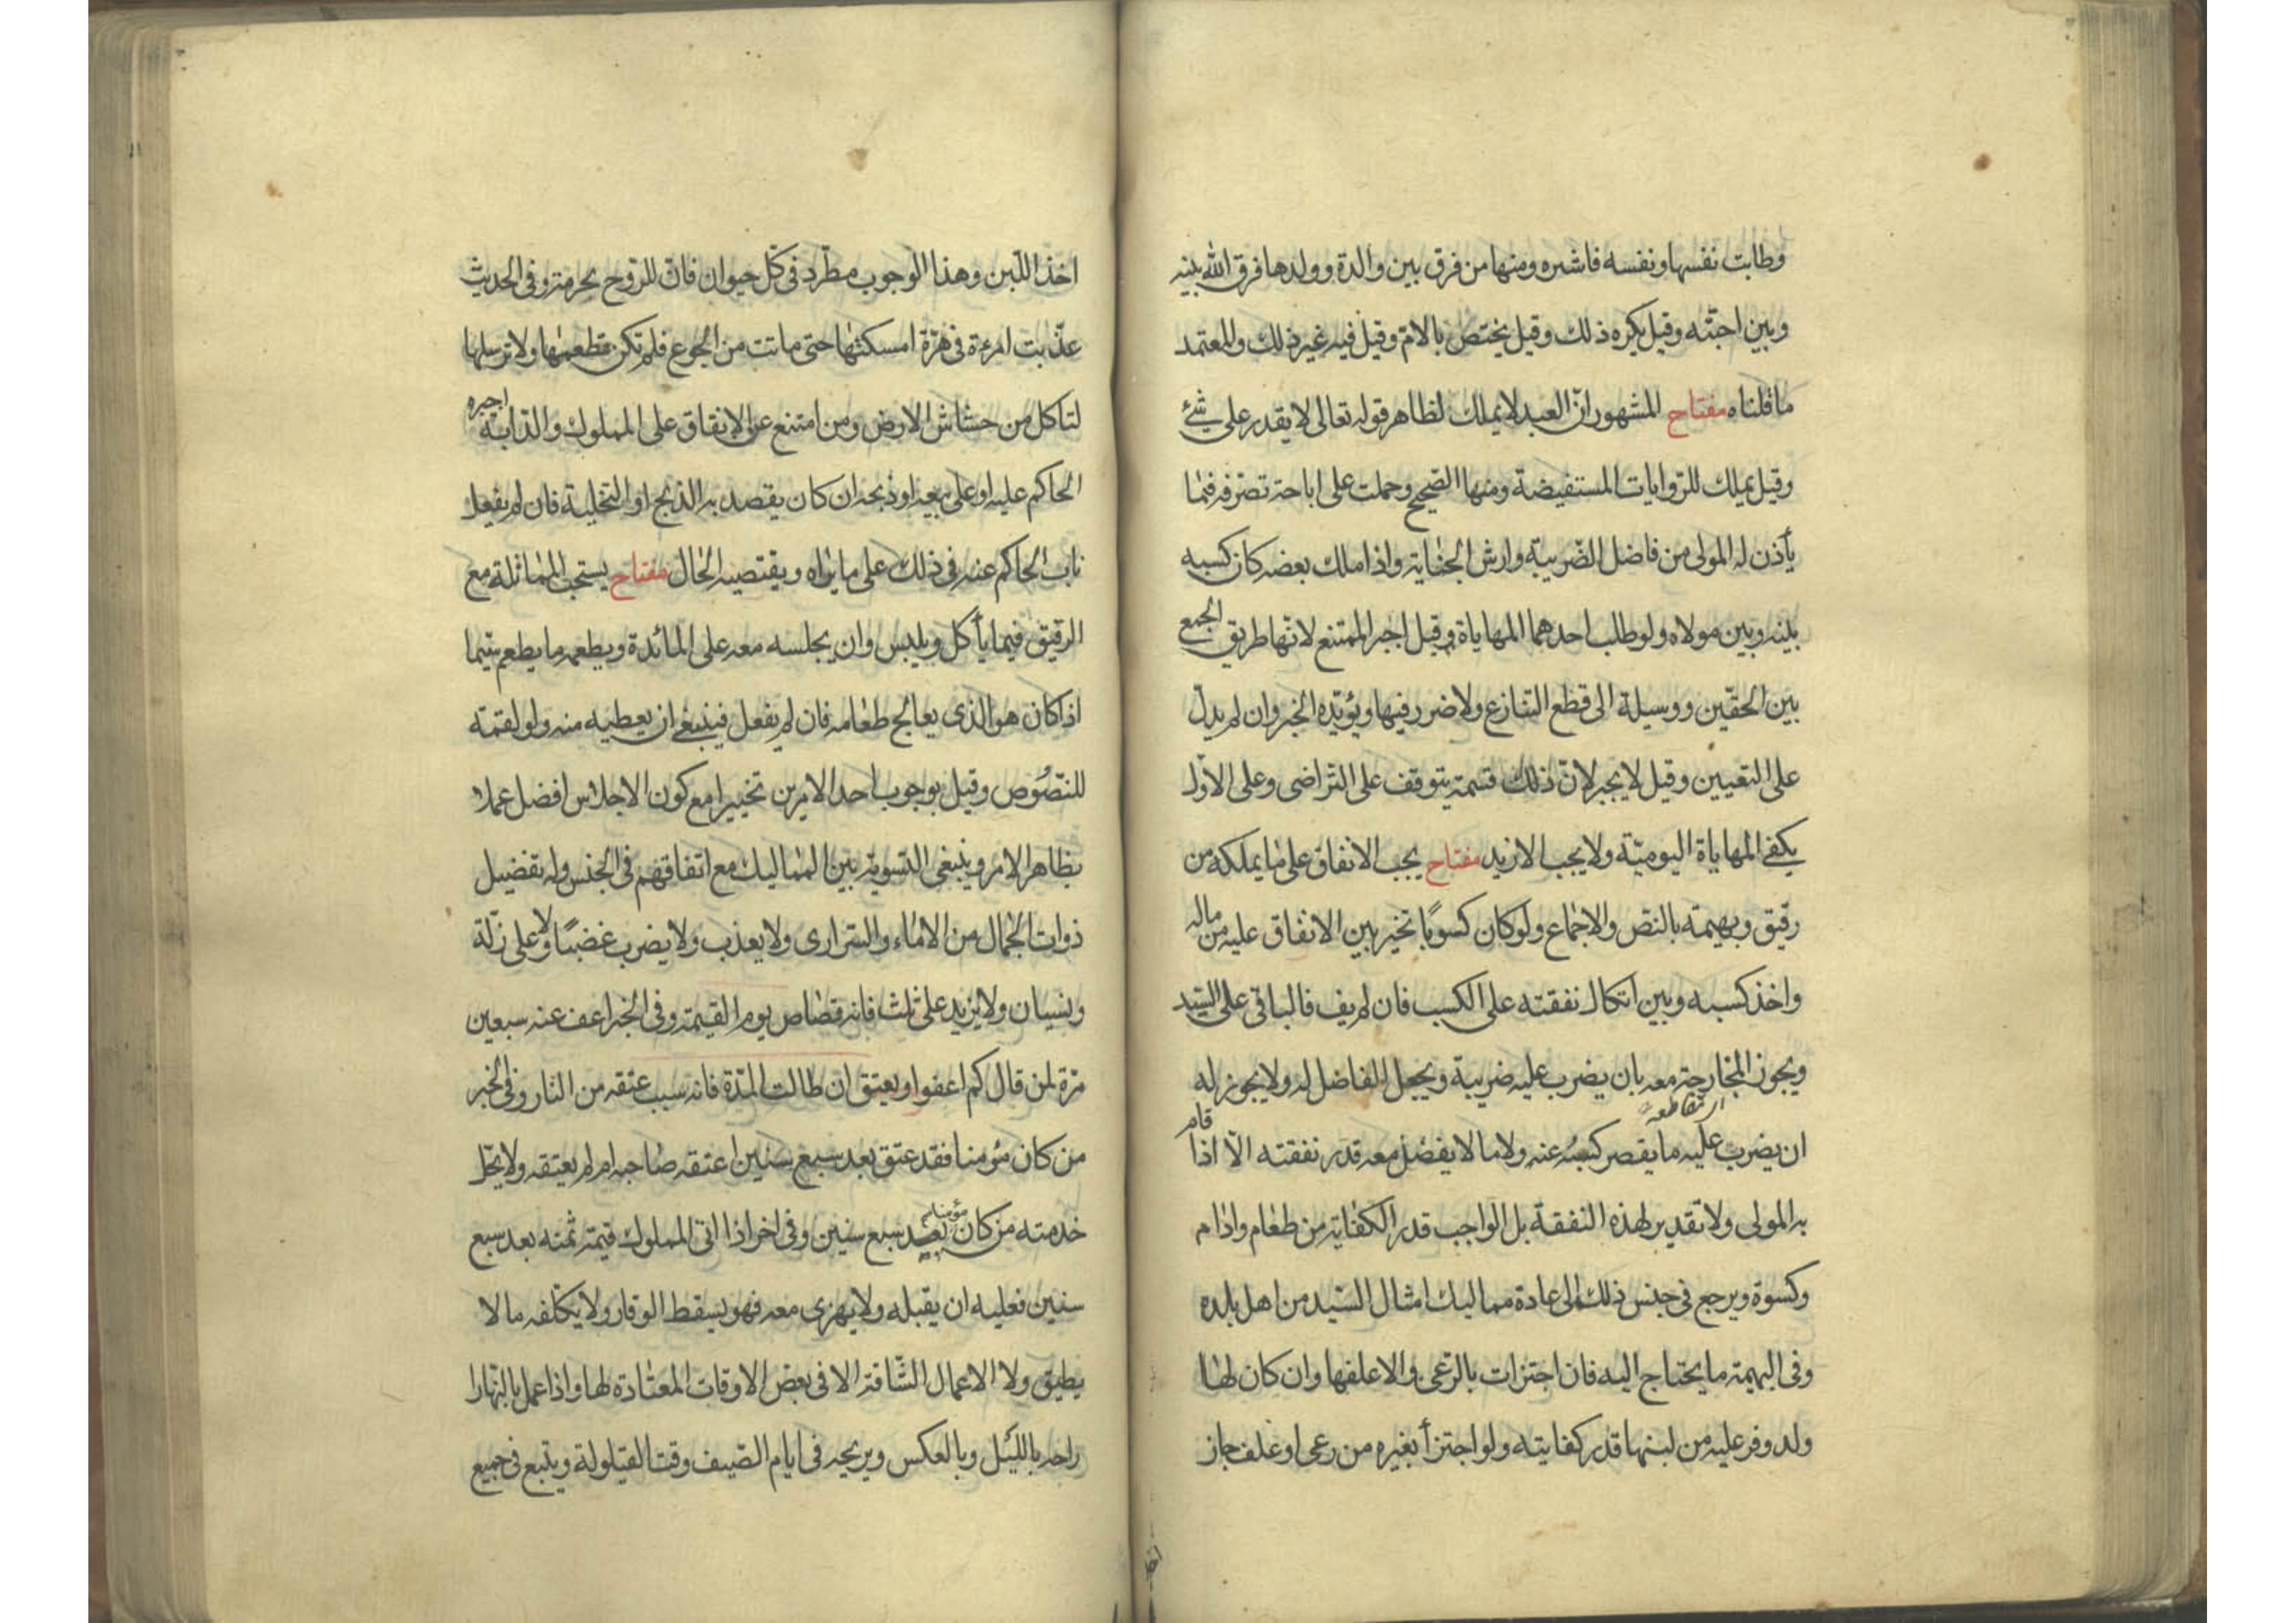 وطابت نفسها ونفسه فاشتره ومنها من فرق بين والدة وولدها فرق الله بينه
وبين احبّته وقيل يكره ذلك وقيل يختص بالامّ وقيل فيه غير ذلك والمعتمد
ما قلناه مفتاح المشهور انّ العبد لا يملك لظاهر قوله تعالى لا يقدر على شئ
وقيل يملك للرّوايات المستفيضة ومنها الصّحيح وحملت على اباحة تصرّفه فيما
يأذن له المولى من فاضل الضّريبة وارش الجناية واذا ملك بعضه كان كسبه
بينه وبين مولاه ولو طلب احدهما المهاياة وقيل اجبر الممتنع لانّها طريق الجمع
بين الحقّين ووسيلة الى قطع التنازع ولا ضرر فيها ويؤيّده الخبر وان لم يدلّ
على التعيين وقيل لا يجبر لانّ ذلك قسمة يتوقف على التراضى وعلى الاوّل
يكفى المهاياة اليوميّة ولا يجب الازيد مفتاح يجب الانفاق على ما يملكه من
رقيق وبهيمة بالنصّ والاجماع ولو كان كسوبًا تخير بين الانفاق عليه من ماله
واخذ كسبه وبين اتكال نفقته على الكسب فان لم يف فالباقى على السّيد
ويجوز المخارجة معه بان يضرب عليه ضريبة ويجعل الفاضل له ولا يجوز له
ان يضرب عليه ما يقصر كسبه عنه ولا ما لا يفضل معه قدر نفقته الّا اذا قام
به المولى ولا تقدير لهذه النفقة بل الواجب قدر الكفاية من طعام وادام
وكسوة ويرجع فى جنس ذلك الى عادة مماليك امثال السّيد من اهل بلده
وفى البهيمة ما يحتاج اليه فان اجتزات بالرّعى والا علفها وان كان لها
ولد وفر عليه من لبنها قدر كفايته ولو اجتزأ بغيره من رعى او علف جاز
اخذ اللّبن وهذا الوجوب مطّرد فى كلّ حيوان فانّ للرّوح حرمة وفى الحديث
عذّبت امرءة فى هرّة امسكتها حتى ماتت من الجوع فلم تكن تطعمها ولا ترسلها
لتاكل من حشاش الارض ومن امتنع عن الانفاق على المملوك والدّابة اجبره
الحاكم عليه او على بيعه او ذبحه ان كان يقصد به الذبح او التخلية فان لم يفعل
ناب الحاكم عنه فى ذلك على ما يراه ويقتضيه الحال مفتاح يستحب المماثلة مع
الرقيق فيما يأكل ويلبس وان يجلسه معه على المائدة ويطعمه ما يطعم سيّما
اذا كان هو الذى يعالج طعامه فان لم يفعل فينبغى ان يعطيه منه ولو لقمة
للنّصوص وقيل بوجوب احد الامرين تخييرا مع كون الاجلاس افضل عملا
بظاهر الامر وينبغى التسوية بين المماليك مع اتفاقهم فى الجنس وله تفضيل
ذوات الجمال من الاماء والسّرارى ولا يعذب ولا يضرب غضبًا ولا على زلّة
ونسيان ولا يزيد على ثلث فانه قصاص يوم القيمة وفى الخبر اعف عنه سبعين
مرّة لمن قال كم اعفو او يعتق ان طالت المدّة فانه سبب عتقه من النار وفى الخبر
من كان مؤمنا فقد عتق بعد سبع سنين اعتقه صاحبه ام لم يعتقه ولا يحل
خدمته من كان مؤمنا بعد سبع سنين وفى اخر اذا اتى المملوك قيمة ثمنه بعد سبع
سنين فعليه ان يقبله ولا يهزى معه فهو يسقط الوقار ولا يكلّفه ما لا
يطيق ولا الاعمال الشّاقة الا فى بعض الاوقات المعتادة لها واذا عمل بالنّهار ا
راحه بالليل وبالعكس ويريحه فى ايام الصّيف وقت القيلولة ويتبع فى جميع